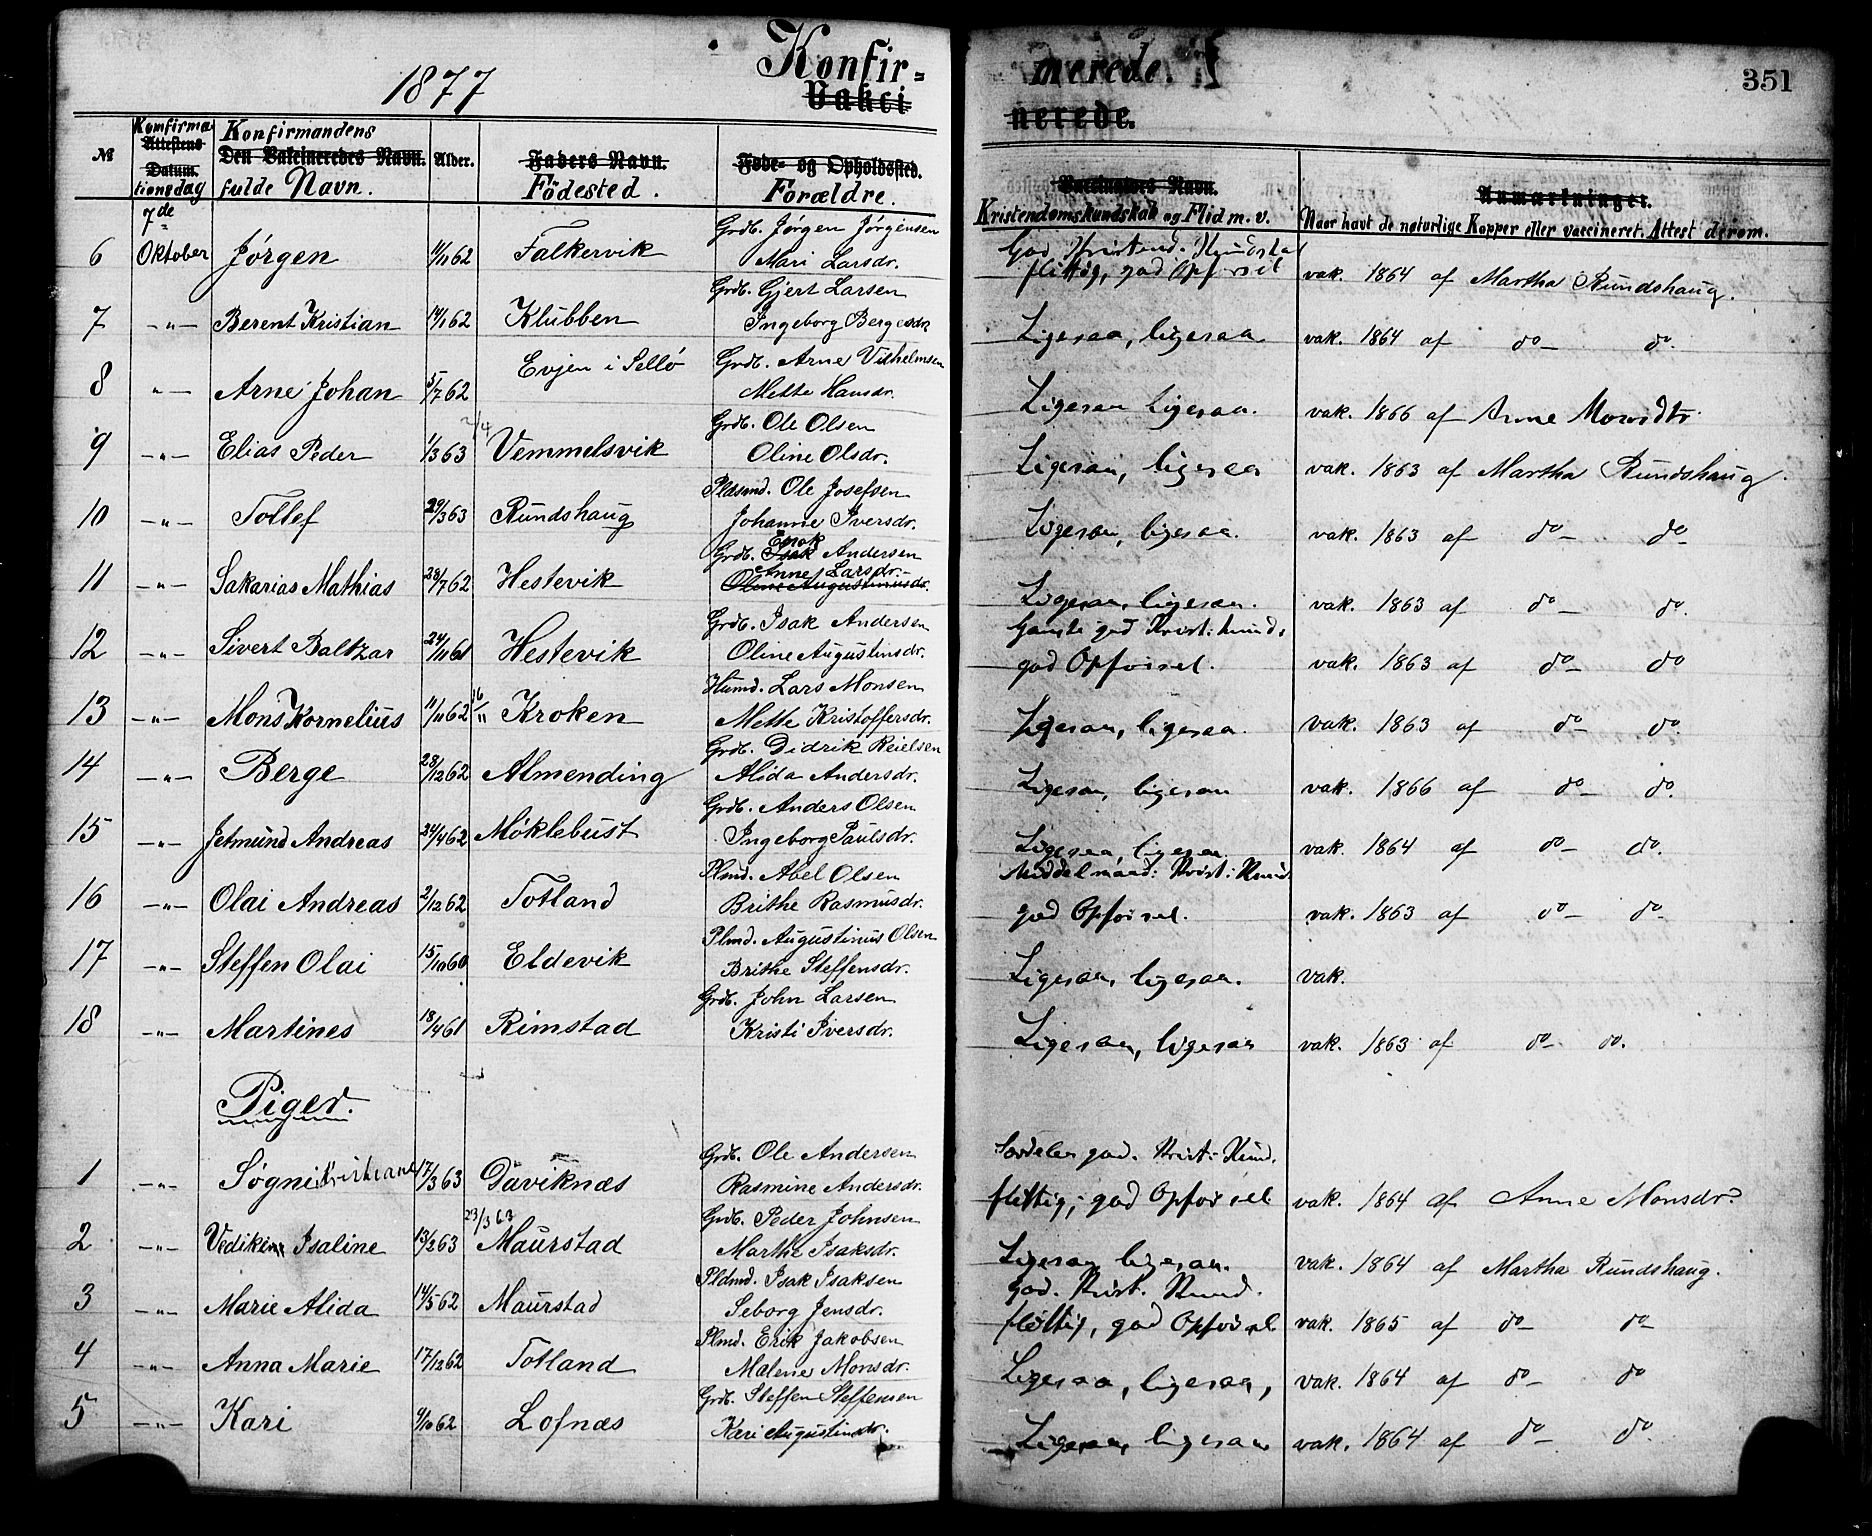 1877
Konfir-
merede.
351
Vakci
nerede.
№
Konfirma-
Attestens
Datum.
tionsdag
Konfirmandens
Den Vakcineredes Navn.
fulde Navn.
Alder.
Faders Navn.
Födested.
Føde- og Opholdssted.
Forældre.
Vaccinators Navn.
Kristendomskundskab og Flid m. v.
Anmærkninger.
Naar havt de naturlige Kopper eller vaccineret. Attest derom.
7de
Grdb. Jørgen Jørgensen
6 Oktober Jørgen 4/11 62 Falkervik Mari Larsdr. God Kristend. Kundska
flittig, god Opførsel vak. 1864 af Martha Rundshaug.
Grdb. Gjert Larsen
7 -"- Berent Kristian 14/1 62 Klubben Ingeborg Bergesdr Ligesaa, ligesaa vak. 1864 af do- do.
Grdb. Arne Vilhelmsen
8 "- Arne Johan 5/7 62 Evjen i Sellö Mette Hansdr. Ligesaa ligesaa. vak. 1866 af Anne Monsdtr.
Grdb. Ole Olsen
9 -"- Elias Peder 1/3 63 2/4 Vemmelsvik Oline Olsdr. Ligesaa, ligesaa vak. 1863 af Martha Rundshaug.
Pladsmd. Ole Josefsen
10 -"- Tollef 29/3 63 Rundshaug Johanne Iversdr. Ligesaa, ligesaa. vak. 1863 af do- do-
Enok
Grdb. Isak Andersen
Anne Larsdr.-
11 -"- Sakarias Mathias 28/7 62 Hestevik Oline Augustinusdr. Ligesaa, ligesaa. vak. 1863 af do- do.
Grdb. Isak Andersen Ganske god Krist: Kund:
12 -"- Sivert Baltzar 24/11 61 Hestevik Oline Augustinsdr. god Opförsel. vak. 1863 af do- do
Husmd. Lars Monsen
13 -"- Mons Kornelius 11/11 62 16/11 Kroken Mette Kristoffersdr. Ligesaa, ligesaa. vak. 1863 af do- do.
Grdb. Didrik Reielsen
14 -"- Berge 28/12 62 Almending Alida Andersdr. Ligesaa, ligesaa vak. 1866 af do- do.
Grdb. Anders Olsen
15 -"- Jetmund Andreas 24/4 62 Möklebust Ingeborg Paulsdr. Ligesaa, ligesaa vak. 1864 af do- do.
Plmd. Abel Olsen Middelmaad: Krist: Kund.
16 -"- Olai Andreas 2/12 62 Totland Brithe Rasmusdr. god Opförsel. vak. 1863 af do- do-
Plmd. Augustinus Olsen
17 -"- Steffen Olai 15/10 60 Eldevik Brithe Steffensdr. Ligesaa, ligesaa. vak.
Grdb. John Larsen
18 -"- Martines 18/4 61 Rimstad Kristi Iversdr. Ligesaa, ligesaa vak. 1863 af do- do.
Piger.
Grdb. Ole Andersen Særdeles god. Krist: Kund.
1 -"- Søgni Kristiane 17/3 63 Daviknæs Rasmine Andersdr. flittig, god Opförsel vak. 1864 af Anne Monsdr.
Grdb. Peder Johnsen
2 -"- Vedikine Isaline 13/2 63 23/3 63 Maurstad Marthe Isaksdr. Ligesaa ligesaa. vak. 1864 af Martha Rundshaug.
Pldmd. Isak Isaksen God. Krist. Kund.
3 -"- Marie Alida 14/5 62 Maurstad Seborg Jensdr. flittig, god Opförsel vak. 1865 af do- do-
Plmd. Erik Jakobsen
4 -"- Anna Marie 17/12 62 Totland Malene Monsdr. Ligesaa, ligesaa, vak. 1864 af do- do
Grdb. Steffen Steffensen
5 -"- Kari 4/10 62 Lofnæs Kari Augustinsdr. Ligesaa, ligesaa vak. 1864 af do- do.